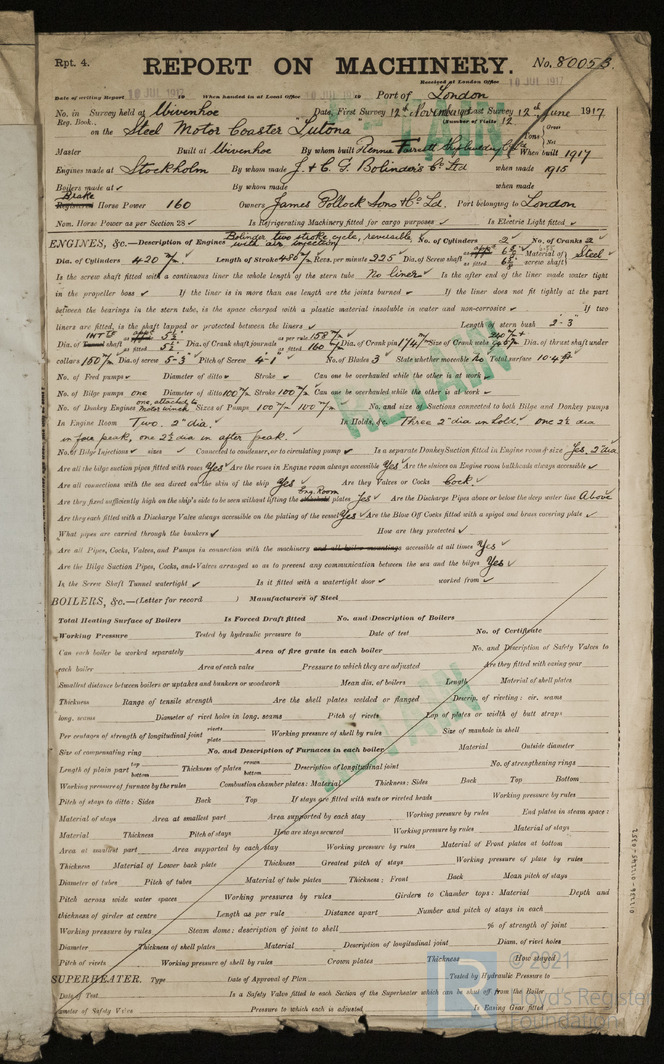 Rpt. 4. REPORT ON MACHINERY. No. 80053.
Received at London Office 10 JUL 1917
Date of writing Report 10 JUL 1917 19 When handed in at Local Office 19 Port of London
No. in Survey held at Wivenhoe Date, First Survey 12th Last Survey 12th June 1917
Reg. Book. (Number of Visits 12)
on the Steel Motor Coaster Tutona Tons Gross Net
Master Built at Wivenhoe By whom built Rennie Forrett Shipbuilding When built 1917
Engines made at Stockholm By whom made J. & C. G. Bolinder's Co Ltd when made 1915
Boilers made at ✓ By whom made when made
Brake
Registered Horse Power 160 Owners James Pollock Sons & Co. Ld. Port belonging to London
Nom. Horse Power as per Section 28 ✓ Is Refrigerating Machinery fitted for cargo purposes ✓ Is Electric Light fitted ✓
ENGINES, &c.—Description of Engines Bolinder two stroke cycle, reversible, with air injection No. of Cylinders 2 No. of Cranks 2
Dia. of Cylinders 420 m/m Length of Stroke 485 m/m Revs. per minute 225 Dia. of Screw shaft as fitted Material of screw shaft Steel
Is the screw shaft fitted with a continuous liner the whole length of the stern tube No liner Is the after end of the liner made water tight
in the propeller boss ✓ If the liner is in more than one length are the joints burned ✓ If the liner does not fit tightly at the part
between the bearings in the stern tube, is the space charged with a plastic material insoluble in water and non-corrosive ✓ If two
liners are fitted, is the shaft lapped or protected between the liners ✓ Length of stern bush 2'-3"
Dia. of Tunnel shaft as fitted 5½" Dia. of Crank shaft journals as per rule 158 m/m as fitted 160 m/m Dia. of Crank pin Size of Crank webs Dia. of thrust shaft under
collars 160 m/m Dia. of screw 5'-3" Pitch of Screw 4'-1" No. of Blades 3 State whether moveable No Total surface 10.4 ft²
No. of Feed pumps ✓ Diameter of ditto ✓ Stroke ✓ Can one be overhauled while the other is at work ✓
No. of Bilge pumps one Diameter of ditto 100 m/m Stroke 100 m/m Can one be overhauled while the other is at work ✓
No. of Donkey Engines one, attached to motor winch Sizes of Pumps 100 m/m 100 m/m No. and size of Suctions connected to both Bilge and Donkey pumps
In Engine Room Two. 2" dia. In Holds, &c. Three 2" dia in hold. one 2½ dia
in fore peak, one 2½ dia in after peak.
No. of Bilge Injections ✓ sizes ✓ Connected to condenser, or to circulating pump ✓ Is a separate Donkey Suction fitted in Engine room & size Yes, 2" dia
Are all the bilge suction pipes fitted with roses Yes Are the roses in Engine room always accessible Yes Are the sluices on Engine room bulkheads always accessible ✓
Are all connections with the sea direct on the skin of the ship Yes Are they Valves or Cocks Cock
Are they fixed sufficiently high on the ship's side to be seen without lifting the Eng. Room plates Yes Are the Discharge Pipes above or below the deep water line Above
Are they each fitted with a Discharge Valve always accessible on the plating of the vessel Yes Are the Blow Off Cocks fitted with a spigot and brass covering plate ✓
What pipes are carried through the bunkers ✓ How are they protected ✓
Are all Pipes, Cocks, Valves, and Pumps in connection with the machinery and all boiler mountings accessible at all times Yes
Are the Bilge Suction Pipes, Cocks, and Valves arranged so as to prevent any communication between the sea and the bilges Yes
Is the Screw Shaft Tunnel watertight ✓ Is it fitted with a watertight door ✓ worked from ✓
BOILERS, &c.—(Letter for record ) Manufacturers of Steel
Total Heating Surface of Boilers Is Forced Draft fitted No. and Description of Boilers
Working Pressure Tested by hydraulic pressure to Date of test No. of Certificate
Can each boiler be worked separately Area of fire grate in each boiler No. and Description of Safety Valves to
each boiler Area of each valve Pressure to which they are adjusted Are they fitted with easing gear
Smallest distance between boilers or uptakes and bunkers or woodwork Mean dia. of boilers Length Material of shell plates
Thickness Range of tensile strength Are the shell plates welded or flanged Descrip. of riveting: cir. seams
long. seams Diameter of rivet holes in long. seams Pitch of rivets Lap of plates or width of butt straps
Per centages of strength of longitudinal joint rivets plate Working pressure of shell by rules Size of manhole in shell
Size of compensating ring No. and Description of Furnaces in each boiler Material Outside diameter
Length of plain part top bottom Thickness of plates crown bottom Description of longitudinal joint No. of strengthening rings
Working pressure of furnace by the rules Combustion chamber plates: Material Thickness: Sides Back Top Bottom
Pitch of stays to ditto: Sides Back Top If stays are fitted with nuts or riveted heads Working pressure by rules
Material of stays Area at smallest part Area supported by each stay Working pressure by rules End plates in steam space:
Material Thickness Pitch of stays How are stays secured Working pressure by rules Material of stays
Area at smallest part Area supported by each stay Working pressure by rules Material of Front plates at bottom
Thickness Material of Lower back plate Thickness Greatest pitch of stays Working pressure of plate by rules
Diameter of tubes Pitch of tubes Material of tube plates Thickness: Front Back Mean pitch of stays
Pitch across wide water spaces Working pressures by rules Girders to Chamber tops: Material Depth and
thickness of girder at centre Length as per rule Distance apart Number and pitch of stays in each
Working pressure by rules Steam dome: description of joint to shell % of strength of joint
Diameter Thickness of shell plates Material Description of longitudinal joint Diam. of rivet holes
Pitch of rivets Working pressure of shell by rules Crown plates Thickness How stayed
SUPERHEATER. Type Date of Approval of Plan Tested by Hydraulic Pressure to
Date of Test Is a Safety Valve fitted to each Section of the Superheater which can be shut off from the Boiler
Diameter of Safety Valve Pressure to which each is adjusted Is Easing Gear fitted
RETAIN
RETAIN
RETAIN
© 2021
Lloyd's Register
Foundation